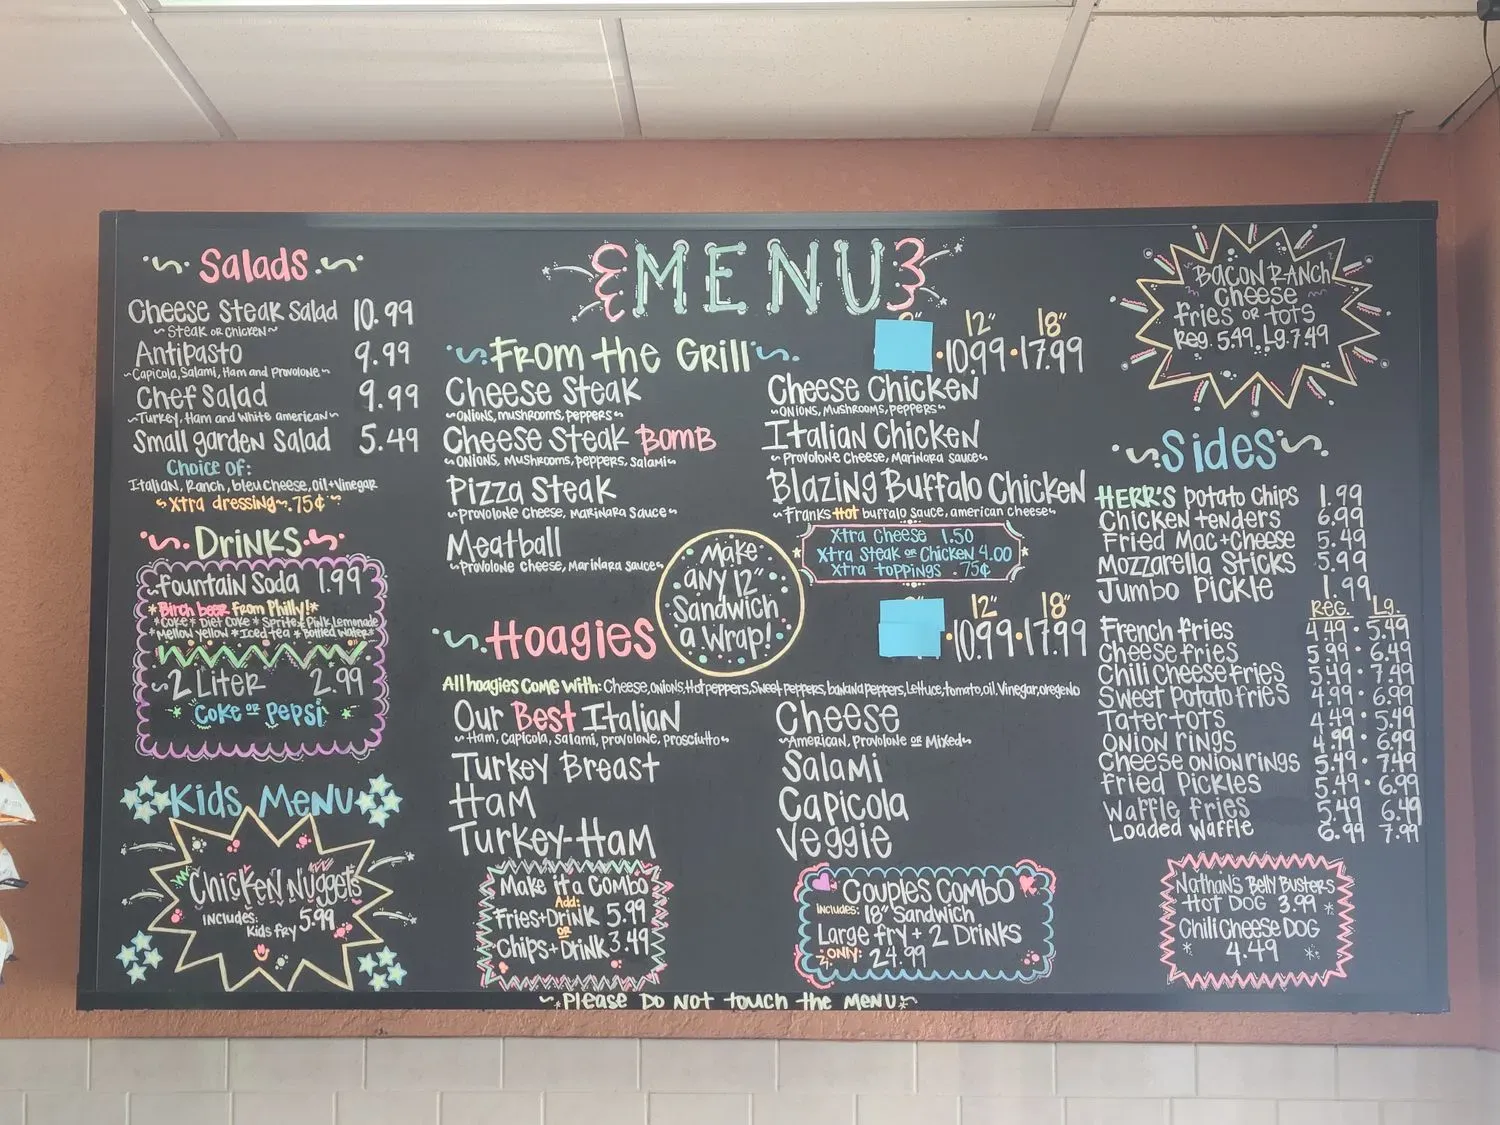 MENU
Salads
Cheese Steak Salad 10.99
~Steak or Chicken~
Antipasto 9.99
~Capicola, Salami, Ham and Provolone~
Chef Salad 9.99
~Turkey, Ham and White american~
Small garden Salad 5.49
Choice of:
Italian, Ranch, bleu cheese, oil+Vinegar
~Xtra dressing~.75¢~
Drinks
Fountain Soda 1.99
*Birch beer from Philly!*
*Coke* Diet Coke * Sprite* Pink Lemonade
*Mellow Yellow *Iced tea * Bottled Water*
~2 Liter 2.99
Coke or Pepsi
Kids Menu
Chicken Nuggets
includes: 5.99
Kids fry
From the Grill
12" 18"
10.99 • 17.99
Cheese Steak
~Onions, mushrooms, peppers~
Cheese Steak Bomb
~Onions, Mushrooms, peppers, salami~
Pizza Steak
~Provolone Cheese, Marinara sauce~
Meatball
~Provolone Cheese, Marinara sauce~
Cheese Chicken
~Onions, Mushrooms, peppers~
Italian Chicken
~Provolone Cheese, Marinara sauce~
Blazing Buffalo Chicken
~Franks Hot buffalo Sauce, american cheese~
Xtra Cheese 1.50
Xtra Steak or Chicken 4.00
Xtra toppings .75¢
Make
any 12"
Sandwich
a Wrap!
Hoagies
12" 18"
10.99 • 17.99
All hoagies Come With: Cheese, onions, Hot peppers, Sweet peppers, banana peppers, Lettuce, tomato, oil, Vinegar, oregeno
Our Best Italian
~Ham, Capicola, salami, provolone, prosciutto~
Turkey Breast
Ham
Turkey-Ham
Cheese
~American, Provolone or Mixed~
Salami
Capicola
Veggie
Make it a Combo
Add:
Fries+Drink 5.99
or
Chips+Drink 3.49
Couples Combo
includes: 18" Sandwich
Large fry + 2 Drinks
~Only: 24.99
Bacon Ranch
Cheese
fries or tots
Reg. 5.49 Lg. 7.49
Sides
HERR'S potato Chips 1.99
Chicken tenders 6.99
Fried Mac+Cheese 5.49
Mozzarella Sticks 5.99
Jumbo Pickle 1.99
Reg. Lg.
French fries 4.49 • 5.49
Cheese fries 5.99 • 6.49
Chili Cheese fries 5.49 • 7.49
Sweet Potato fries 4.99 • 6.99
Tater tots 4.49 • 5.49
Onion rings 4.99 • 6.99
Cheese onion rings 5.49 • 7.49
Fried Pickles 5.49 • 6.99
Waffle fries 5.49 6.49
Loaded Waffle 6.99 7.99
Nathan's Belly Busters
Hot Dog 3.99
Chili Cheese Dog
4.49
~*Please Do Not touch the Menu*~